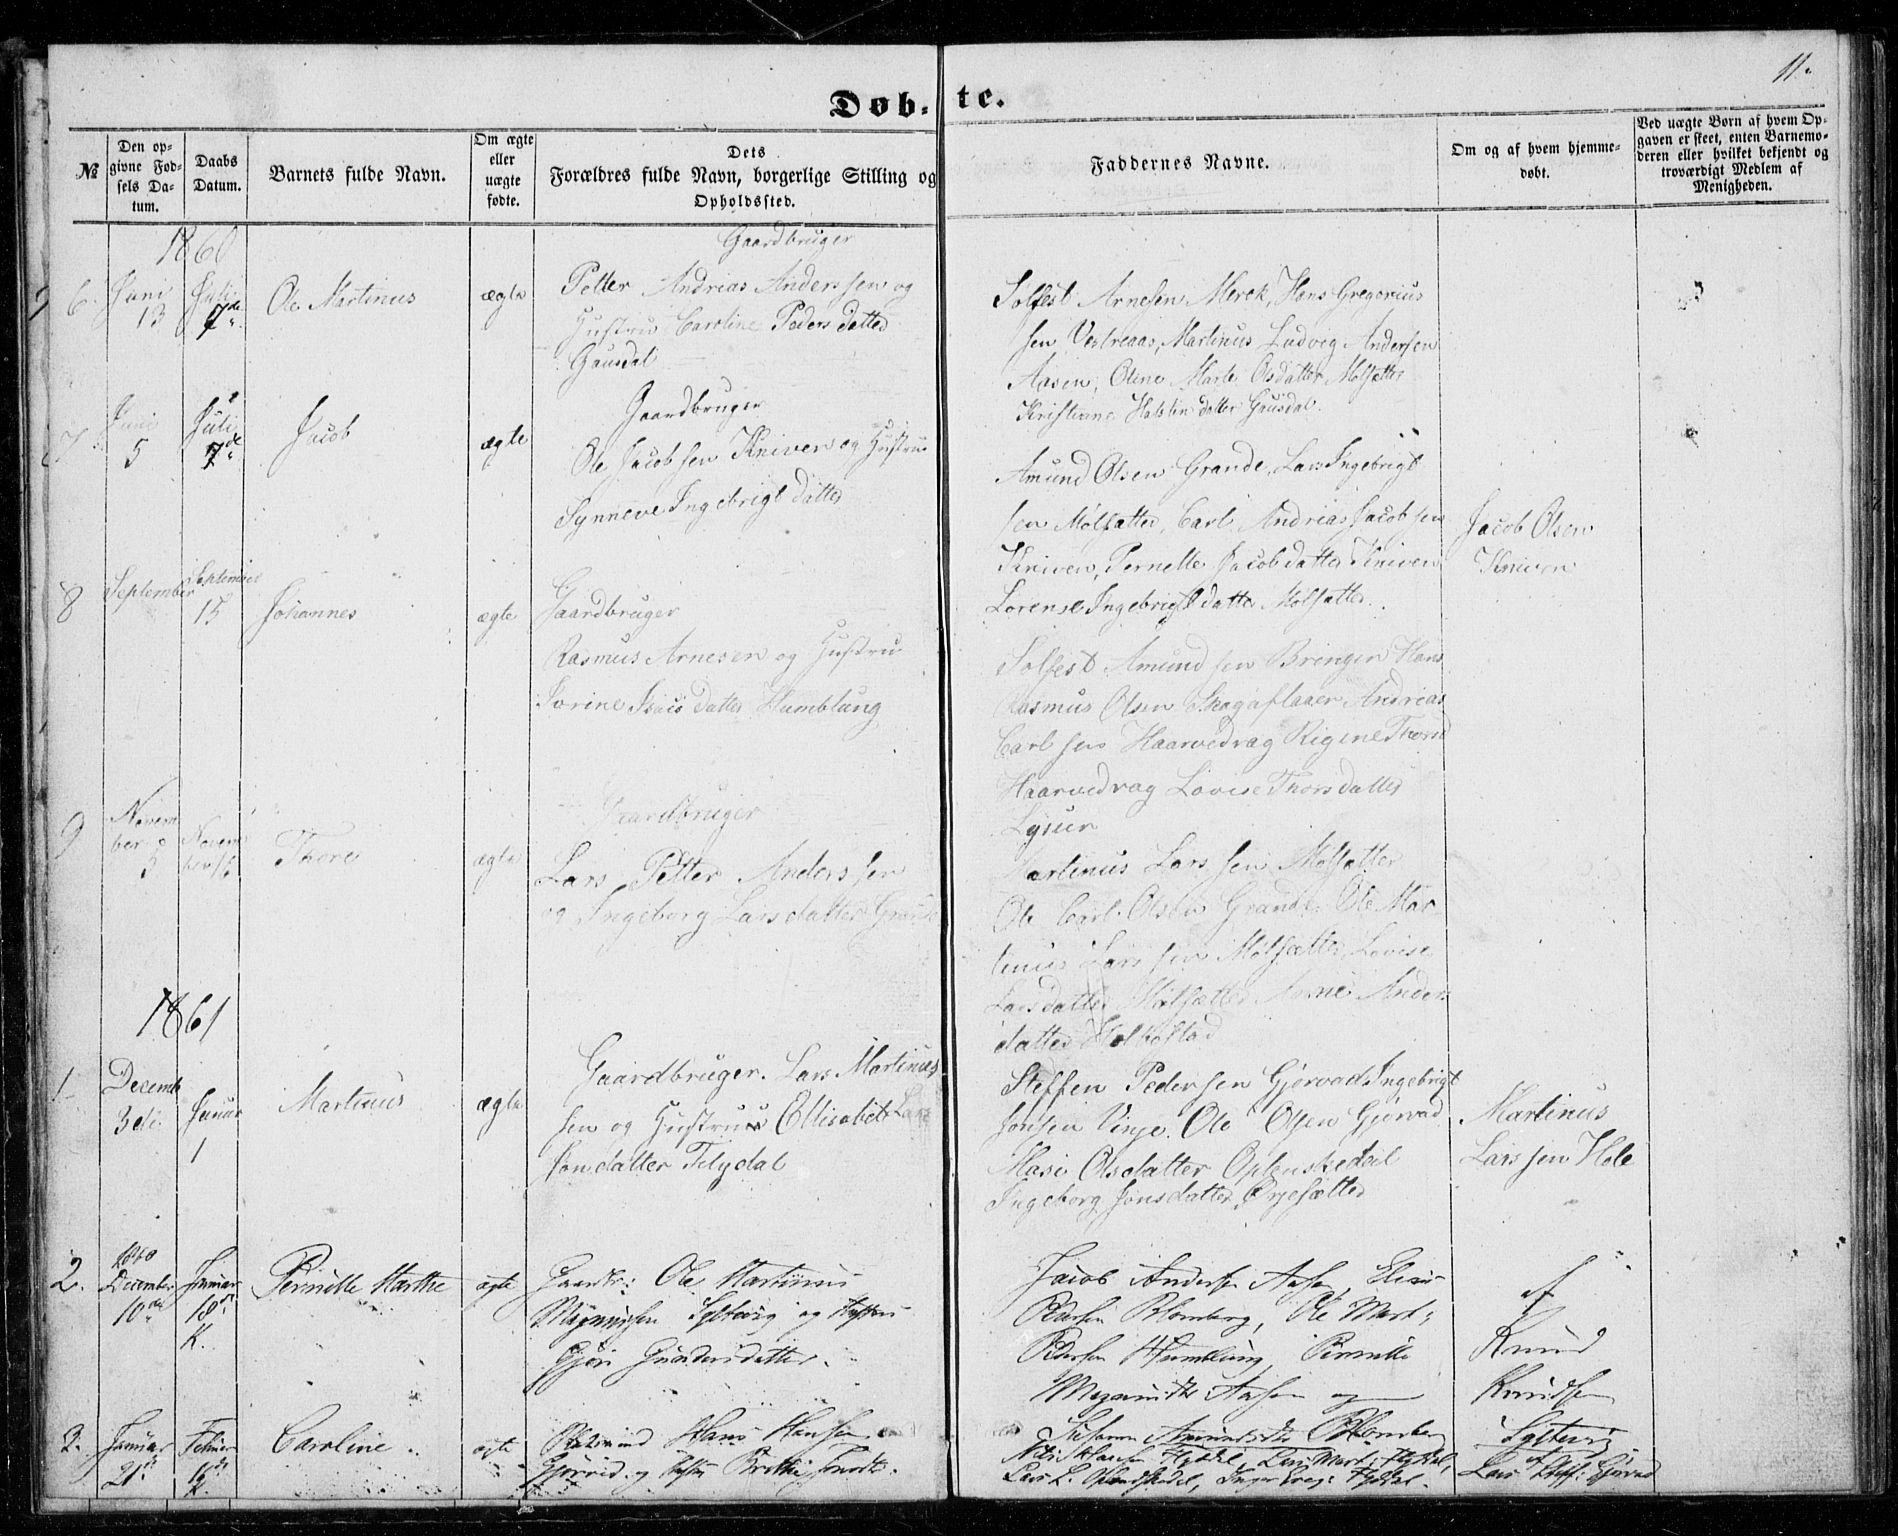 11.
Døb-te.
№
Den opgivne Fødsels Datum.
Daabs Datum.
Barnets fulde Navn.
Om ægte eller uægte fødte.
Dets Forældres fulde Navn, borgerlige Stilling og Opholdssted.
Faddernes Navne.
Om og af hvem hjemmedøbt.
Ved uægte Børn af hvem Opgaven er skeet, enten Barnemoderen eller hvilket bekjendt og troværdigt Medlem af Menigheden.
1860
6. Juni 13
Juli 7de
Ole Martinus
ægte
Gaardbruger
Petter Andrias Anderssen og
Hustru Caroline Pedersdatter
Gausdal
Solfest Arnesen Merok, Hans Gregorius
sen Vestreaas, Martinus Ludvig Andersen
Aasen, Oline Marte Olsdatter Molsætter
Kristianne Halstindatter Gausdal.
7 Juni 5
Juli 7de
Jacob
ægte
Gaardbruger
Ole Jacobsen Kniven og Hustru
Synneve Ingebrigtdatter
Amund Olsen Grande, Lars Ingebrigt
sen Molsætter, Carl Andrias Jacobsen
Kniven, Pernelle Jacobdatter Kniven
Lorense Ingebrigtdatter Molsætter.
Jacob Olsen
Kniven
8 September
September 15
Johannes
ægte
Gaardbruger
Rasmus Arnesen og Hustru
Sorine Isacsdatter Humblung
Solfest Amundsen Bringen Hans
Rasmus Olsen Skagaflaaer Andreas
Carlsen Haarvedrag Rigene Thors
Haarvedrag Lovise Thorsdatter
9 November 5
Thore
ægte
Gaardbruger
Lars Petter Anderssen
og Ingeborg Larsdatter
Martinus Larssen Molsætter
Ole Carl Olsen Grande, Ole Mar
tinus Larssen Molsætter, Lovise
Larsdatter Molsætter Anders
datter
1861
1 Decemb 3die
Januar 1
Martinus
ægte
Gaardbruger. Lars Martinus
sen og Hustru Ellisabet Lars
Jonsdatter Flydal
Steffen Pedersen Gjørvad Ingebrigt
Jonsen Vinje. Ole Olsen Gjørvad
Masi Olsdatter Oplenskedal
Ingeborg Jonsdatter Ørjesætter
Martinus
Larssen Hole
2. 1860 December 10de
Januar 18de K.
Pernille Marthe
ægte
Gaardbr: Ole Martinus
Magnussen Sylteviig og Hustru
Gjøri Gundersdatter.
Jacob Andersen Aasen,
Pedersen Blomberg, Ole Mart:
Pedersen Humblung, Pernille
Aasen og
Susanne Amundsdtr Blomberg
af
Knud
Knudsen
Sylteviig
3. Januar 21de
Caroline.
ægte
Hans Hansen
Gjørvad og Hustru
Flydal, Lars Mart: Flydal,
Lars L. Oplenskedal, Flydal.
af
Lars Steff: Gjørvad